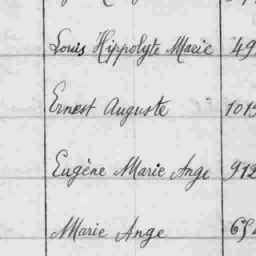 Louis Hippolyte Marie 49
Ernest Auguste 101
Eugène Marie Ange 912
Marie Ange